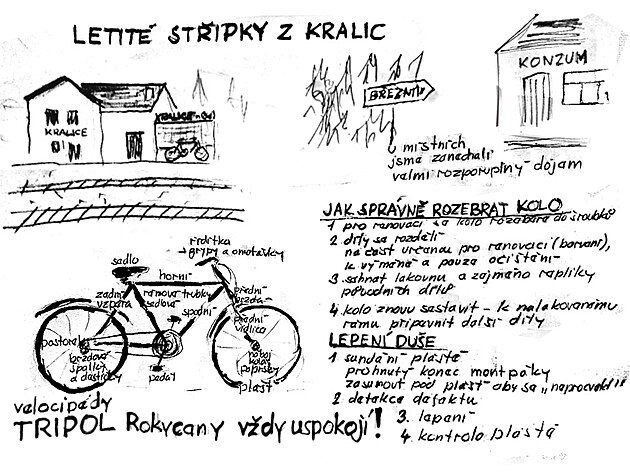 LETITÉ STŘÍPKY Z KRALIC
KRALICE
KRALICE n. Osl.
BŘEZNÍK
KONZUM
U místních
jsme zanechali
velmi rozporuplný dojem
JAK SPRÁVNĚ ROZEBRAT KOLO
1 pro renovaci se kolo rozebere do šroubků
2 díly se rozdělí
na část určenou pro renovaci (barvení),
k výměně a pouze očištění
3. sehnat lakovnu a zajména repliky
původních dílů
4 kolo znovu sestavit - k nalakovanému
rámu připevnit další díly
LEPENÍ DUŠE
1 sundání pláště
prohnutý konec montpáky
zasunout pod plášť aby se „neprocvakl"
2 detekce defektu
3. lepení
4. kontrola pláště
řidítka
→ gripy a omotávky
sedlo
horní
zadní
vzpěra
rámové trubky
sedlová
spodní
přední
brzda
přední
vidlice
pastorek
brzdové
špalíky
a destičky
pedál
náboj
kola
paprsky
plášť
velocipédy
TRIPOL Rokycany vždy uspokojí!